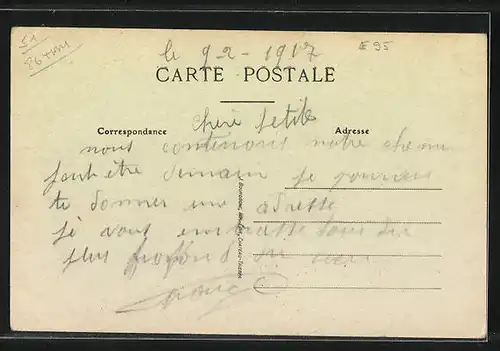 51
le 9 2 - 1917
E 95
CARTE POSTALE
Correspondance
Adresse
chere petite
nous contenons notre chemi
peut être demain je pourrais
te donner une adresse
je vous embrasse tous du
plus profond du